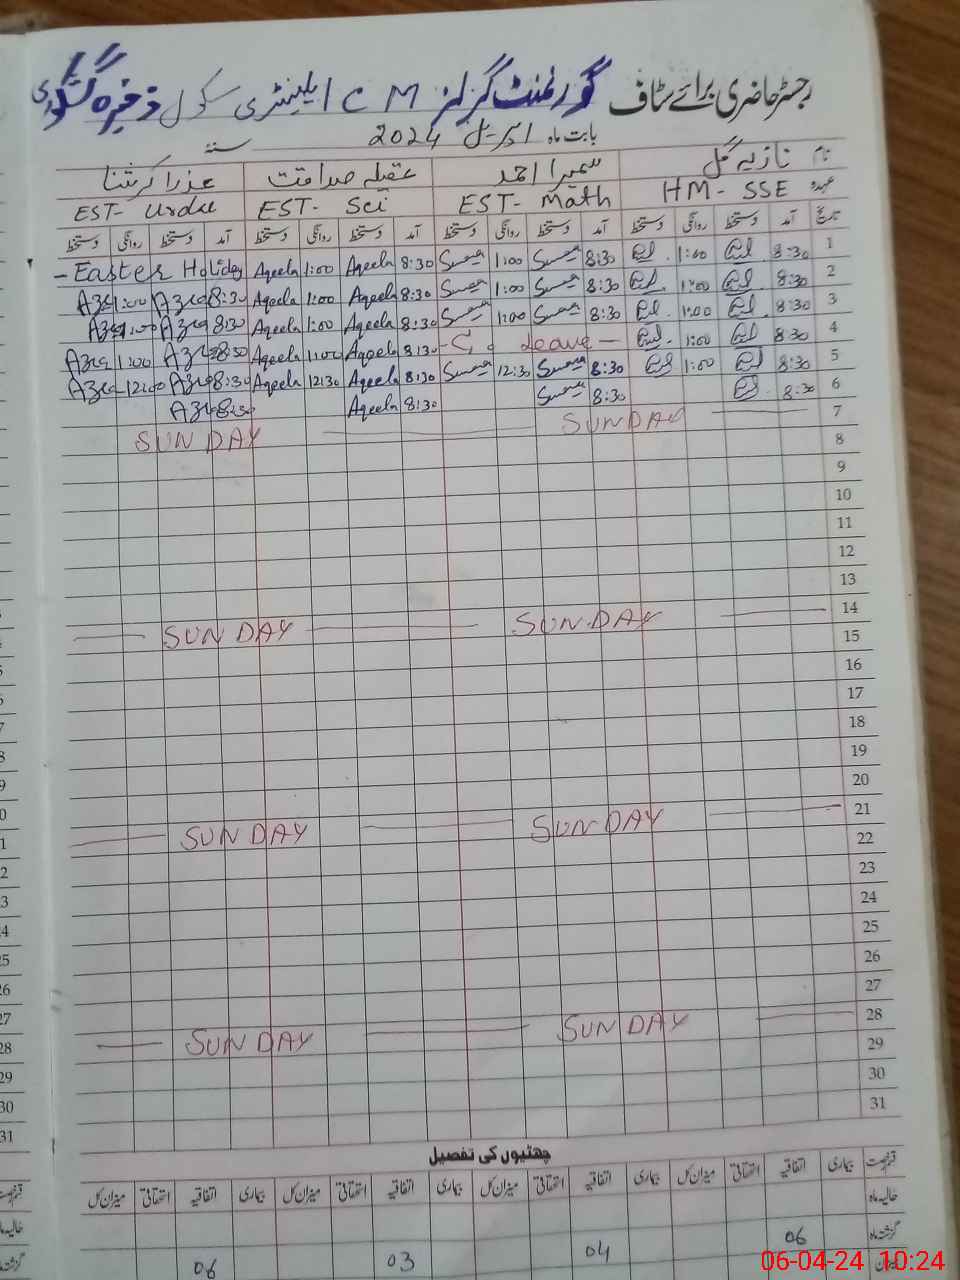 رجسٹر حاضری برائے سٹاف گورنمنٹ گرلز C M ایلیمنٹری سکول ذخیرہ
بابت ماہ اپریل 2024 سنہ
نام نازیہ گل سمیرا احمد عقیلہ صداقت عذرا کرشنا
عہدہ HM - SSE EST - Math EST- Sci EST- Urdu
تاریخ آمد دستخط روانگی دستخط آمد دستخط روانگی دستخط آمد دستخط روانگی دستخط آمد دستخط روانگی دستخط
1 8:30 1:00 8:30 1:00 8:30 Aqeela 1:00 Aqeela Easter Holiday
2 8:30 1:00 8:30 1:00 8:30 Aqeela 1:00 Aqeela 8:30 1:00
3 8:30 1:00 8:30 1:00 8:30 Aqeela 1:00 Aqeela 8:30 1:00
4 8:30 1:00 Leave 8:30 Aqeela 1:00 Aqeela 8:30 1:00
5 8:30 1:00 8:30 12:30 8:30 Aqeela 12:30 Aqeela 8:30 12:00
6 8:30 8:30 8:30 Aqeela 8:30
7 SUNDAY SUNDAY
8
9
10
11
12
13
14 SUNDAY SUNDAY
15
16
17
18
19
20
21 SUNDAY SUNDAY
22
23
24
25
26
27
28 SUNDAY SUNDAY
29
30
31
چھٹیوں کی تفصیل
قسم رخصت بیماری اتفاقیہ استحقاقی میزان کل بیماری اتفاقیہ استحقاقی میزان کل بیماری اتفاقیہ استحقاقی میزان کل بیماری اتفاقیہ استحقاقی میزان کل
حالیہ ماہ
گزشتہ ماہ 06 04 03 06
میزان
06-04-24 10:24